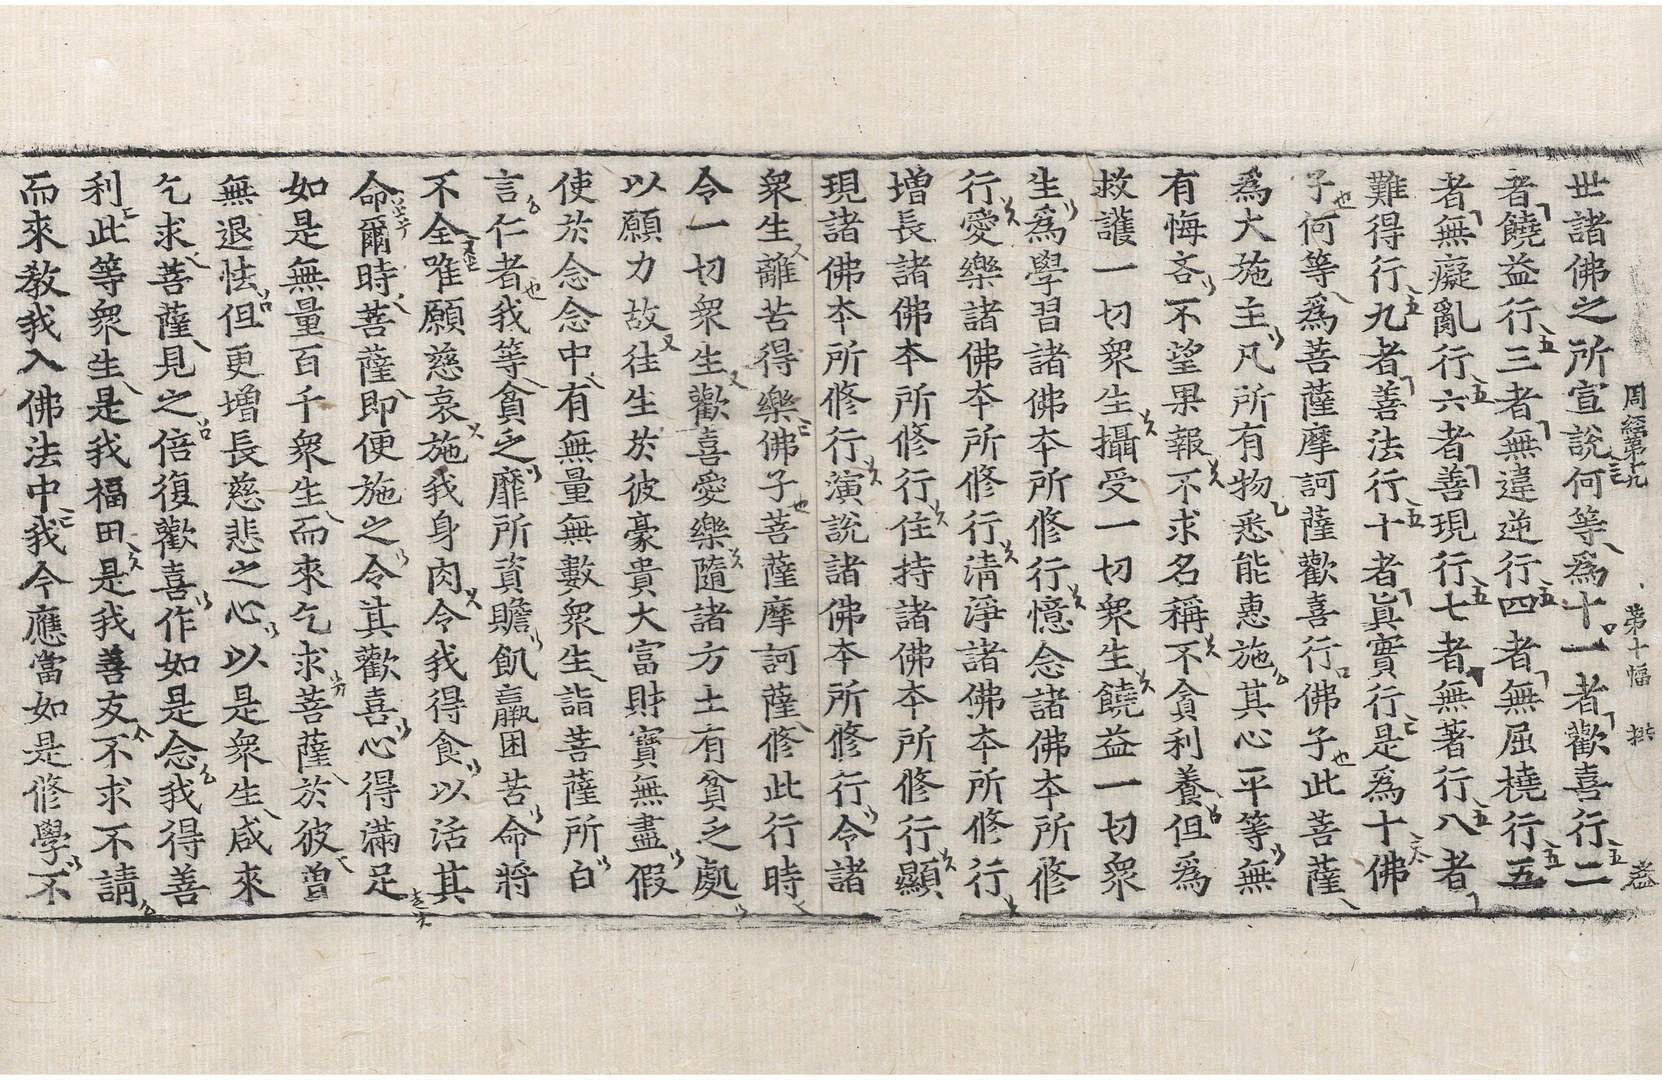 周經第十九 第十幅 拱 卷
世諸佛之所宣說何等爲十一者歡喜行二
者饒益行三者無違逆行四者無屈橈行五
者無癡亂行六者善現行七者無著行八者
難得行九者善法行十者眞實行是爲十佛
子何等爲菩薩摩訶薩歡喜行佛子此菩薩
爲大施主凡所有物悉能惠施其心平等無
有悔吝不望果報不求名稱不貪利養但爲
救護一切衆生攝受一切衆生饒益一切衆
生爲學習諸佛本所修行憶念諸佛本所修
行愛樂諸佛本所修行淸淨諸佛本所修行
增長諸佛本所修行住持諸佛本所修行顯
現諸佛本所修行演說諸佛本所修行令諸
衆生離苦得樂佛子菩薩摩訶薩修此行時
令一切衆生歡喜愛樂隨諸方土有貧乏處
以願力故往生於彼豪貴大富財寶無盡假
使於念念中有無量無數衆生詣菩薩所白
言仁者我等貧乏靡所資贍飢羸困苦命將
不全唯願慈哀施我身肉令我得食以活其
命爾時菩薩卽便施之令其歡喜心得滿足
如是無量百千衆生而來乞求菩薩於彼曾
無退怯但更增長慈悲之心以是衆生咸來
乞求菩薩見之倍復歡喜作如是念我得善
利此等衆生是我福田是我善友不求不請
而來教我入佛法中我今應當如是修學不